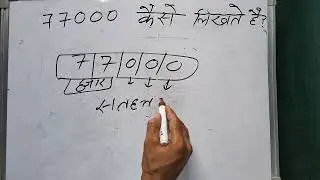 77000 कैसे लिखते है?
7 7 0 0 0
हजार
सतहत्त